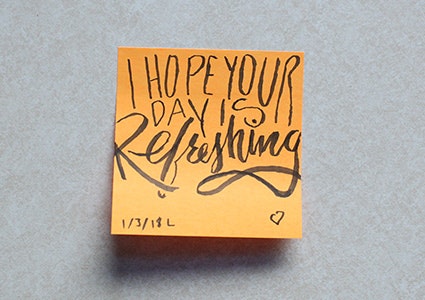 I HOPE YOUR
DAY IS
Refreshing
1/3/18 L